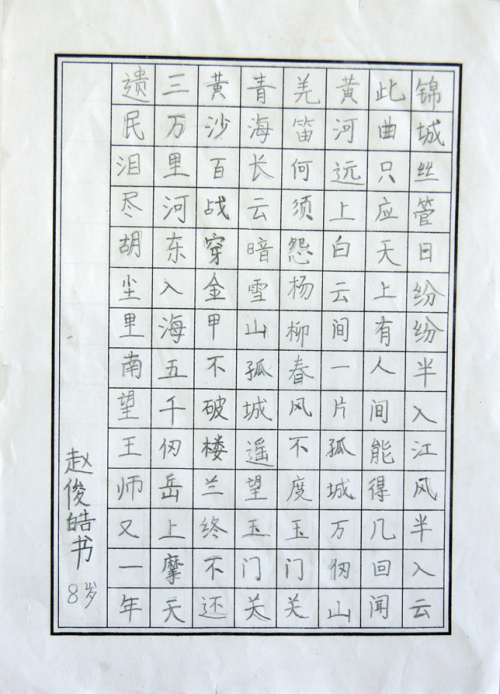 锦城丝管日纷纷半入江风半入云
此曲只应天上有人间能得几回闻
黄河远上白云间一片孤城万仞山
羌笛何须怨杨柳春风不度玉门关
青海长云暗雪山孤城遥望玉门关
黄沙百战穿金甲不破楼兰终不还
三万里河东入海五千仞岳上摩天
遗民泪尽胡尘里南望王师又一年
赵俊皓书
8岁